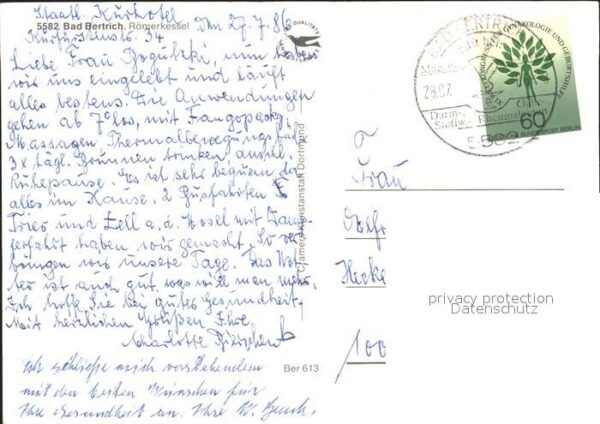 Staatl. Kurhotel
5582 Bad Bertrich. Römerkessel
Kurfürstenstr. 34
Den 27.7.86
Liebe Frau nun haben
wir uns eingelebt und läuft
alles bestens. Die Anwendungen
gehen ab 7 Uhr los, mit Fangopackg.
Massagen, Thermalbewegungsbad
3x tägl. Brunnen trinken anschl.
Ruhepause. Es ist sehr bequem da
alles im Hause. 2 Busfahrten
Trier und Zell a.d. Mosel mit
haben wir gemacht. So ver
bringen wir unsere Tage. Das Wet
ter ist auch gut, was will man mehr.
Ich hoffe Sie bei guter Gesundheit.
Mit herzlichen Grüßen Ihre
Charlotte
Ich schließe mich vorstehendem
mit den besten Wünschen für
Ihre Gesundheit an. Ihre W.
QUALITÄTS
Cramers Kunstanstalt Dortmund
Ber 613
BAD BERTRICH
28.07.
Darm-
Rheuma
5582
FÜR GYNÄKOLOGIE UND GEBURTSHILFE
60
DEUTSCHE BUNDESPOST BERLIN
Frau
100
privacy protection
Datenschutz